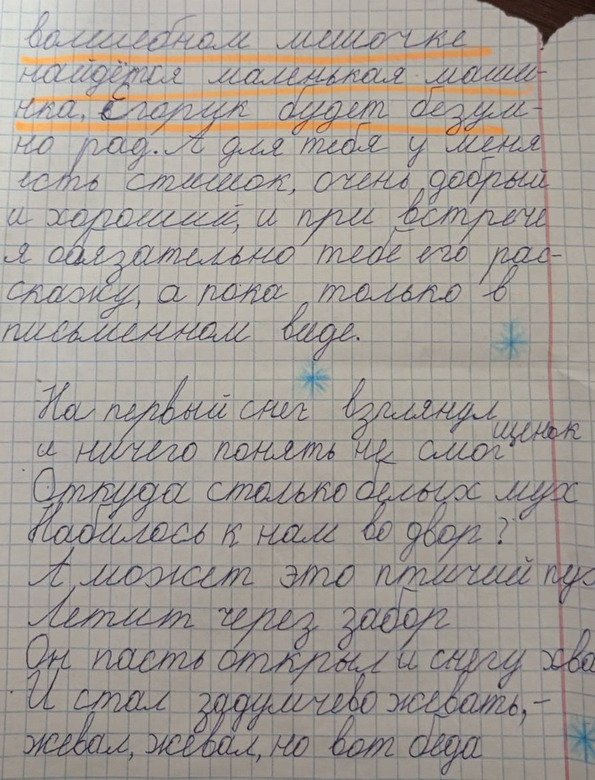 волшебном мешочке
найдётся маленькая маши-
нка, Егорук будет безум-
но рад. А для тебя у меня
есть стишок, очень добрый
и хороший, и при встрече
я обязательно тебе его рас-
скажу, а пока только в
письменном виде.
На первый снег взглянул
щенок
и ничего понять не смог
Откуда столько белых мух
Набилось к нам во двор?
А может это птичий пух
Летит через забор
Он пасть открыл и снегу хва
И стал задумчево жевать,-
жевал, жевал, но вот беда